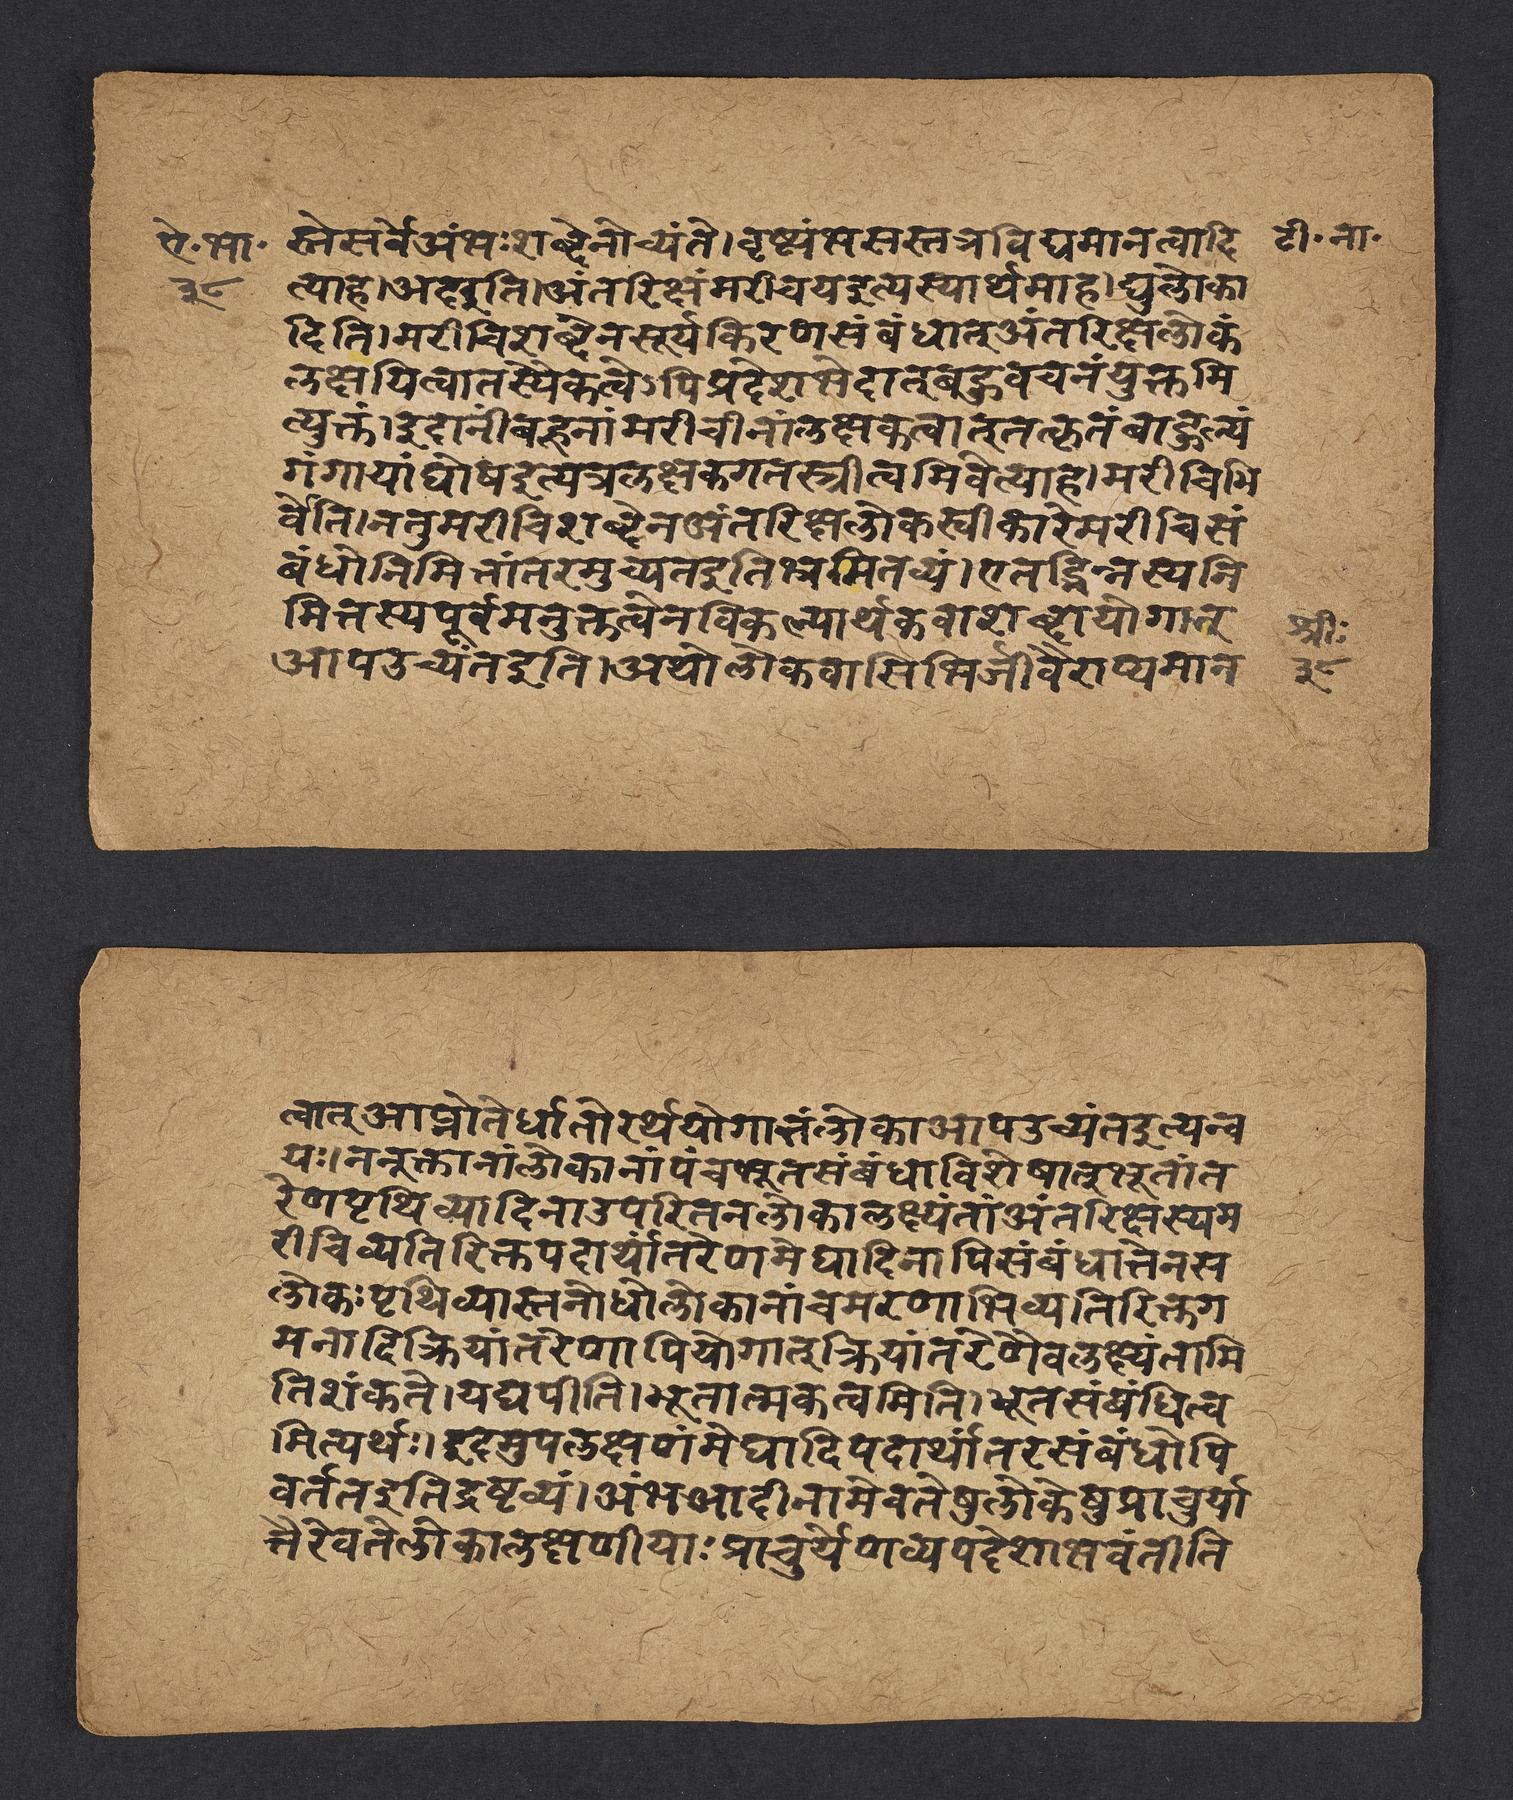 ऐ.भा. स्नेसर्वेअंभःशब्देनोच्यंते।वृष्ट्यंभसस्तत्रविद्यमानत्वादि टी.ना.
३८ त्याह।अहइति।अंतरिक्षंमरीचयइत्यस्यार्थमाह।द्युलोका
दिति।मरीचिशब्देनसूर्यकिरणसंबंधात्अंतरिक्षलोकं
लक्षयित्वातस्यैकत्वेऽपिप्रदेशभेदात्बहुवचनंयुक्तमि
त्युक्तं।इदानींबहूनांमरीचीनांलक्षकत्वात्तत्कृतंबाहुल्यं
गंगायांघोषइत्यत्रलक्षकगतस्त्रीत्वमिवेत्याह।मरीचिभि
र्वेति।ननुमरीचिशब्देनअंतरिक्षलोकस्वीकारेमरीचिसं
बंधोनिमित्तांतरमुच्यतइतिभ्रमितव्यं।एतद्भिन्नस्यनि
मित्तस्यपूर्वमनुक्तत्वेनविकल्पार्थकवाशब्दायोगात्
आपउच्यंतइति।अधोलोकवासिभिर्जीवैराप्यमान
श्रीः
३८
त्वात्आप्नोतेर्धातोरर्थयोगात्तंलोकाआपउच्यंतइत्यन्व
यः।ननूक्तानांलोकानांपंचभूतसंबंधाविशेषात्भूतांत
रेणपृथिव्यादिनाउपरितनलोकालक्ष्यंतांअंतरिक्षस्यम
रीचिव्यतिरिक्तपदार्थांतरेणमेघादिनापिसंबंधात्तेनस
लोकःपृथिव्यास्तनोधोलोकानांचमरणाभिव्यतिरिक्तग
मनादिक्रियांतरेणापियोगात्क्रियांतरेणैवलक्ष्यंतामि
तिशंकते।यद्यपीति।भूतात्मकत्वमिति।भूतसंबंधित्व
मित्यर्थः।इदमुपलक्षणंमेघादिपदार्थांतरसंबंधोपि
वर्ततइतिद्रष्टव्यं।अंभआदीनामेवतेषुलोकेषुप्राचुर्या
त्तैरेवतेलोकालक्षणीयाःप्राचुर्येणव्यपदेशाभवंतीति